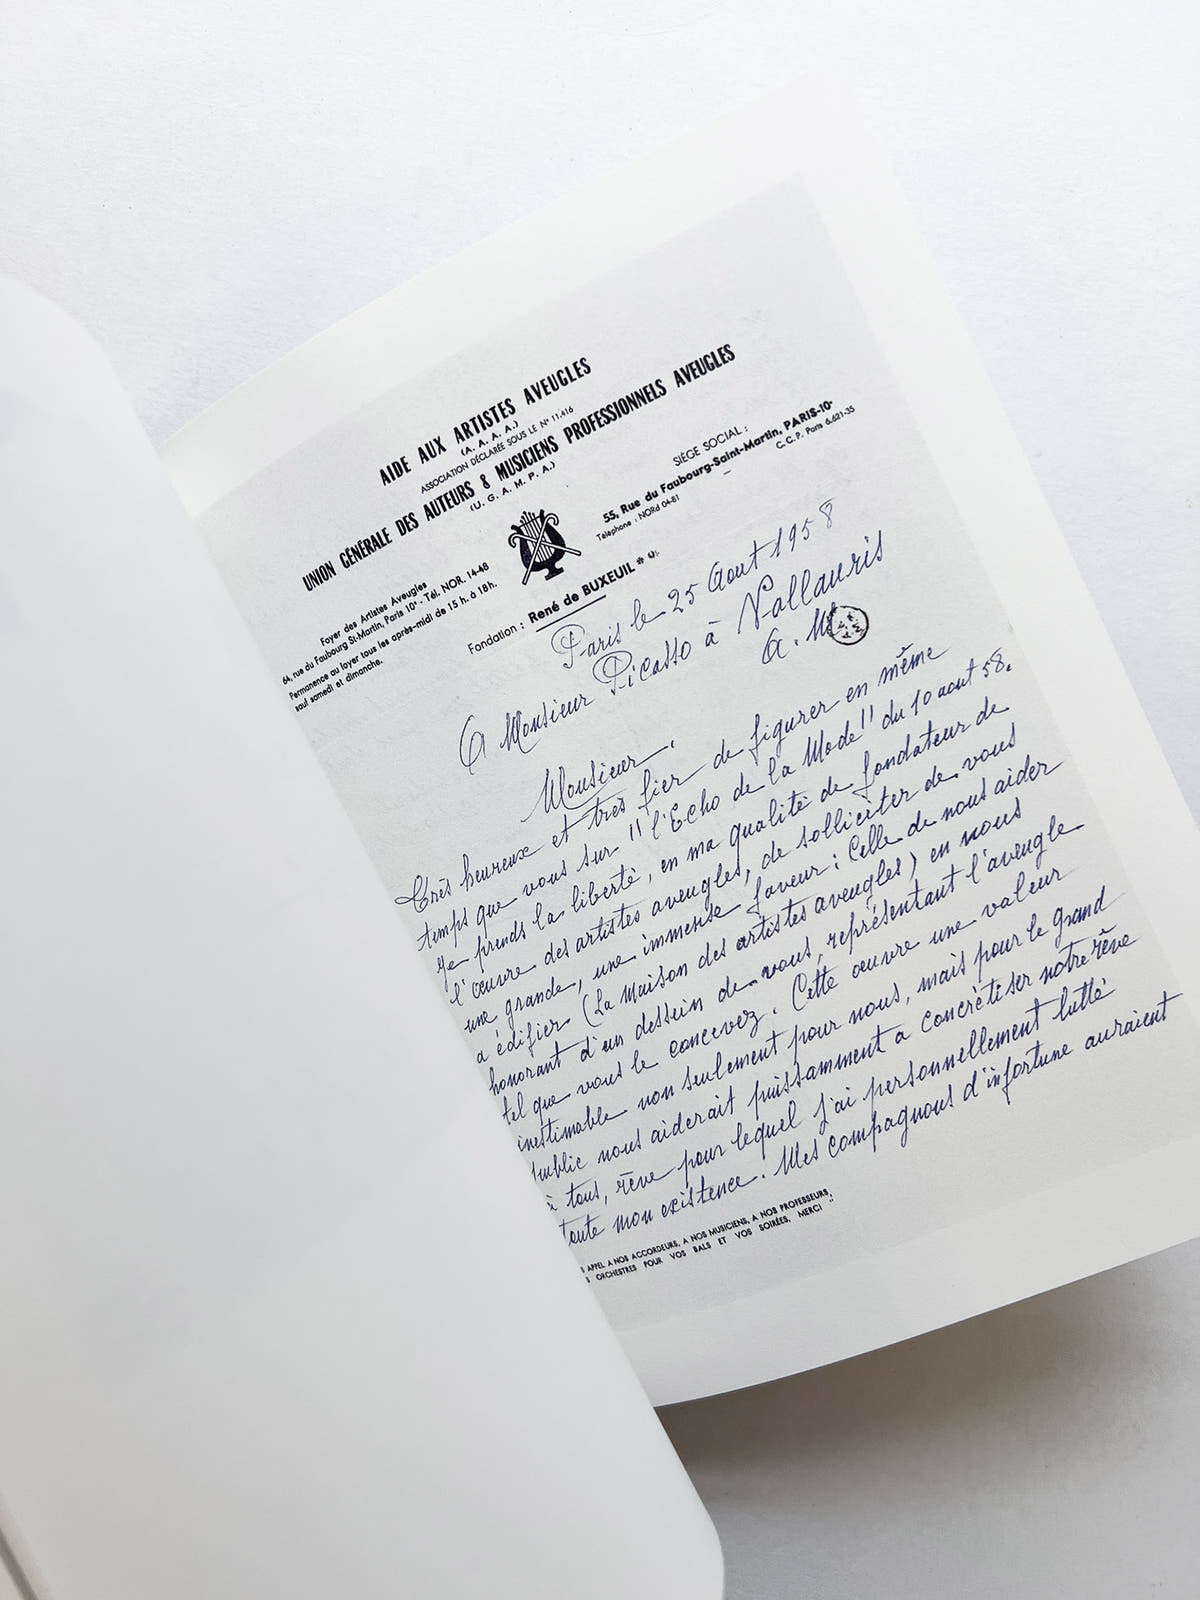 AIDE AUX ARTISTES AVEUGLES
(A. A. A. A.)
ASSOCIATION DÉCLARÉE SOUS LE N° 11.416
UNION GÉNÉRALE DES AUTEURS & MUSICIENS PROFESSIONNELS AVEUGLES
(U. G. A. M. P. A.)
Foyer des Artistes Aveugles
64, rue du Faubourg St-Martin, Paris 10e - Tél. NOR. 14-48
Permanence au foyer tous les après-midi de 15 h. à 18h.
sauf samedi et dimanche.
SIÈGE SOCIAL :
55, Rue du Faubourg-Saint-Martin, PARIS-10e
Téléphone : NORd 04-81
C. C. P. Paris 6.621-35
Fondation : René de BUXEUIL
Paris le 25 Aout 1958
A Monsieur Picasso à Vallauris
A. M
Monsieur.
Très heureux et très fier de figurer en même
temps que vous sur "l'Echo de la Mode" du 10 aout 58.
je prends la liberté, en ma qualité de fondateur de
l'œuvre des artistes aveugles, de solliciter de vous
une grande, une immense faveur : Celle de nous aider
a édifier (La Maison des artistes aveugles) en nous
honorant d'un dessein de vous, représentant l'aveugle
tel que vous le concevez. Cette œuvre une valeur
inestimable non seulement pour nous, mais pour le grand
public nous aiderait puissamment a concrétiser notre rêve
à tous, rêve pour lequel j'ai personnellement lutté
toute mon existence. Mes compagnons d'infortune auraient
APPEL A NOS ACCORDEURS, A NOS MUSICIENS, A NOS PROFESSEURS,
ORCHESTRES POUR VOS BALS ET VOS SOIRÉES, MERCI !